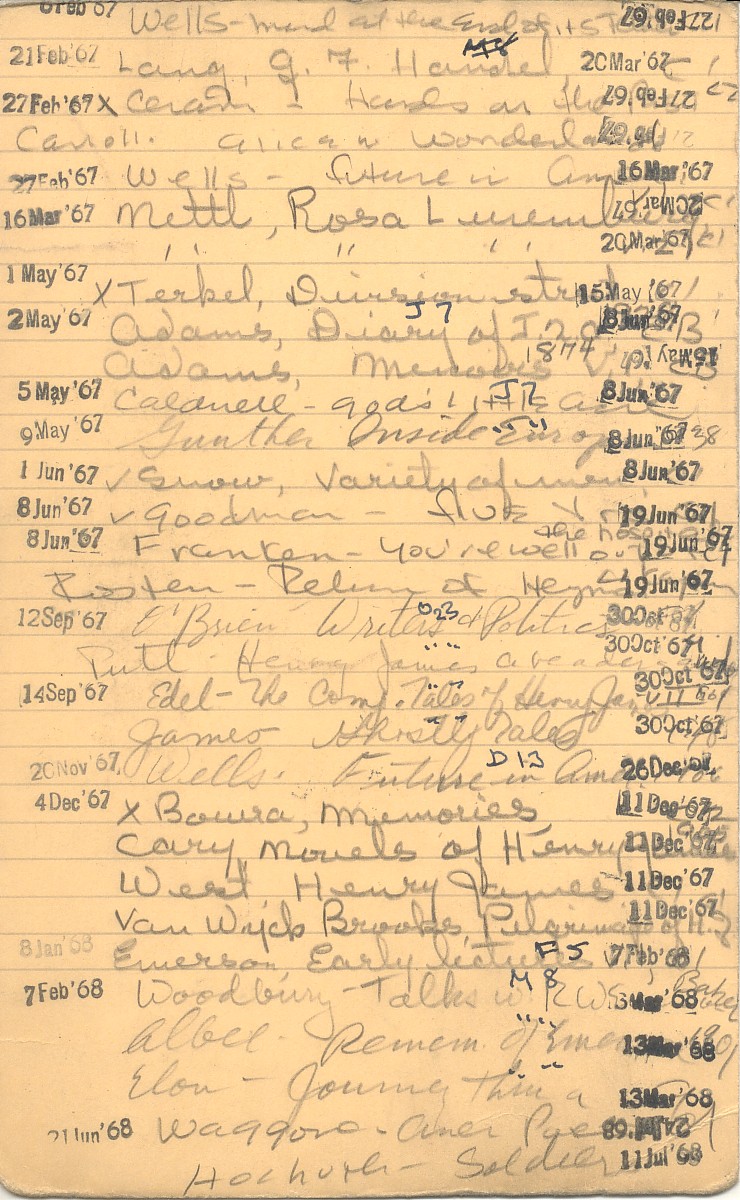 6 Feb '67 Wells - mind at the End of its 27 Feb '67
21 Feb '67 Lang, G. F. Handel M8 20 Mar '67
27 Feb '67 X Ceram - Hands on the 27 Feb '67
Carroll. Alice in Wonderland
27 Feb '67 Wells - future in Am 16 Mar '67
16 Mar '67 Nettl, Rosa Luxemburg 20 Mar '67
" " " 20 Mar '67
1 May '67 X Terkel, Division street 15 May '67
2 May '67 Adams, Diary of J. Q. J 7 8 Jun '67
Adams, Memoirs 1874 15 May '67
5 May '67 Caldwell - God's little acre J 7 8 Jun '67
9 May '67 Gunther Inside Europe " " 8 Jun '67 38
1 Jun '67 ✓ Snow, Variety of men 8 Jun '67
8 Jun '67 ✓ Goodman - Five 19 Jun '67
8 Jun '67 Franken - You're well out of the hosp 19 Jun '67
Rosten - Return of Hyman 19 Jun '67
12 Sep '67 O'Brien Writers & Politics O23 30 Oct '67
Putt - Henry James a reader " " 30 Oct '67
14 Sep '67 Edel - The Comp. Tales of Henry Jam " " V 11 30 Oct '67
James Ghostly Tales " " 30 Oct '67
20 Nov '67 Wells. Future in Ame D 13 26 Dec '67
4 Dec '67 X Bowra, Memories 11 Dec '67
Cary Novels of Henry James 11 Dec '67
West Henry James 11 Dec '67
Van Wyck Brooks, Pilgrimage of H. J. 11 Dec '67
8 Jan '68 Emerson Early lectures F 5 7 Feb '68
7 Feb '68 Woodbury - Talks w. RWE M 8 Mar '68
Albee. Remem. of Emer " " 1901 13 Mar '68
Elon - Journey thru a " " 13 Mar '68
21 Jun '68 Waggone - Amer Poe '68
Hochhuth - Soldiers 11 Jul '68